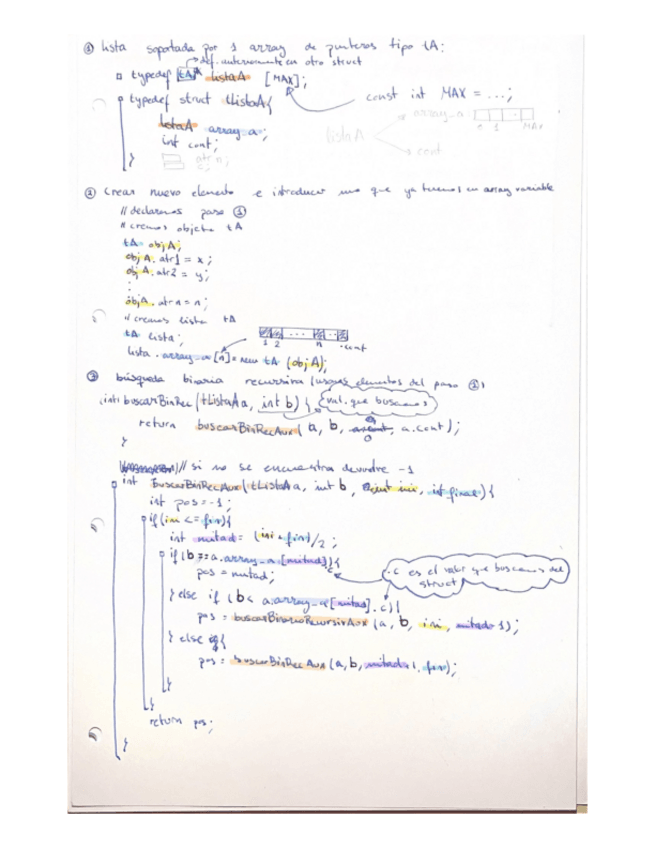 ① lista soportada por 1 array de punteros tipo tA:
def. anteriormente en otro struct
typedef tA* listaA [MAX];
const int MAX = ...;
typedef struct tListaA{
listaA array_a;
int cont;
}
listaA
array_a
0 1 MAX
cont
② Crear nuevo elemento e introducir uno que ya tenemos en array variable
// declaramos paso ①
// creamos objeto tA
tA objA;
objA.atr1 = x;
objA.atr2 = y;
:
objA.atr n = n;
// creamos lista tA
tA lista;
1 2 ... n ... cont
lista.array_a [n] = new tA (objA);
③ búsqueda binaria recursiva (usamos elementos del paso ①)
(int) buscarBinRec (tListaA a, int b) { val. que buscamos
return buscarBinRecAux (a, b, 0, a.cont);
}
// si no se encuentra devuelve -1
int buscarBinRecAux (tListaA a, int b, int ini, int final) {
int pos = -1;
if (ini <= fin) {
int mitad = (ini + fin)/2;
if (b == a.array_a [mitad].c) {
pos = mitad;
.c es el valor que buscamos del struct
} else if (b < a.array_a [mitad].c) {
pos = buscarBinarioRecursivAux (a, b, ini, mitad-1);
} else {
pos = buscarBinRecAux (a, b, mitad+1, fin);
}
}
return pos;
}